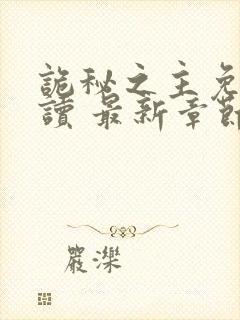 詭秘之主免
讀 最新章節
嚴濼